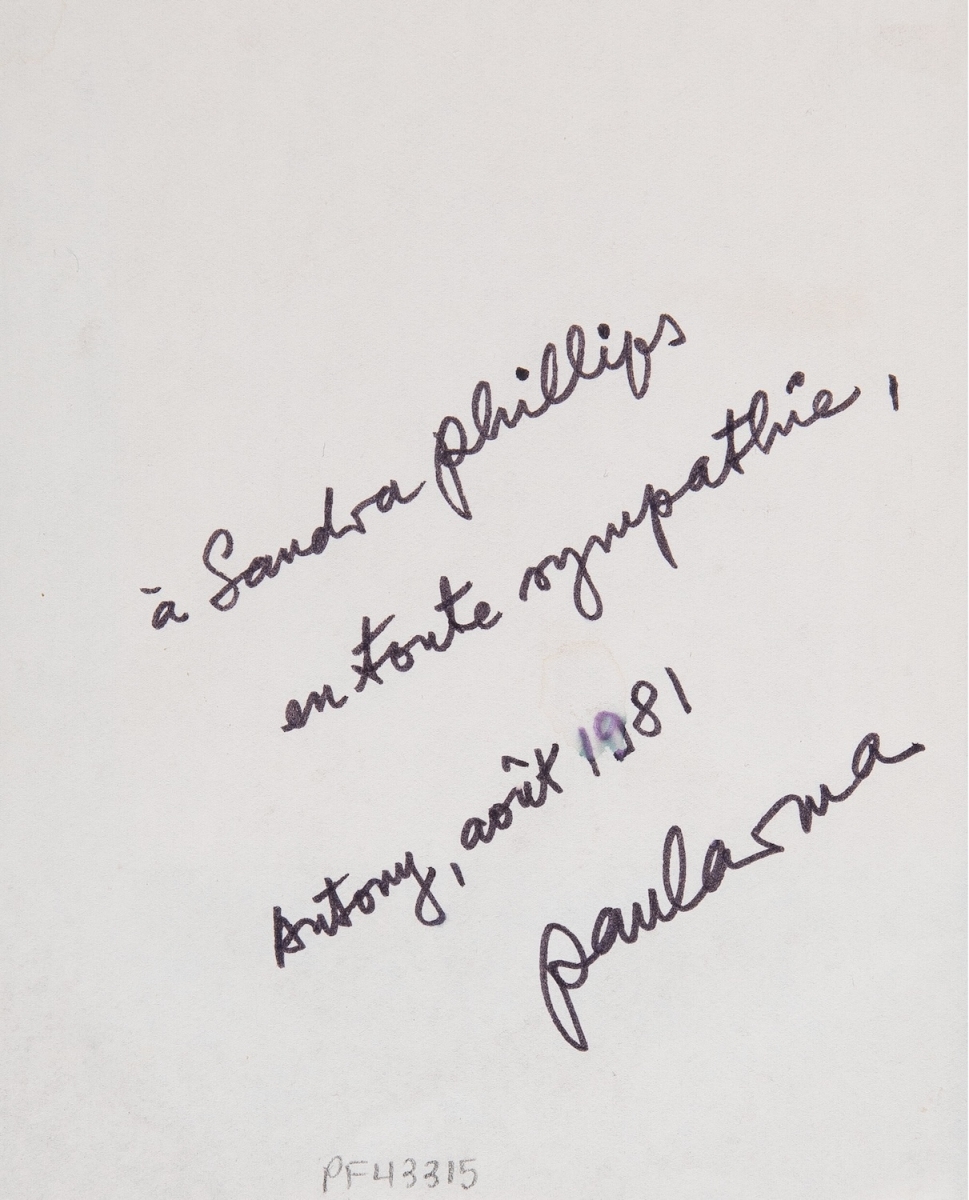 à Sandra phillips
en toute sympathie,
Antony, août 1981
paularma
PF43315